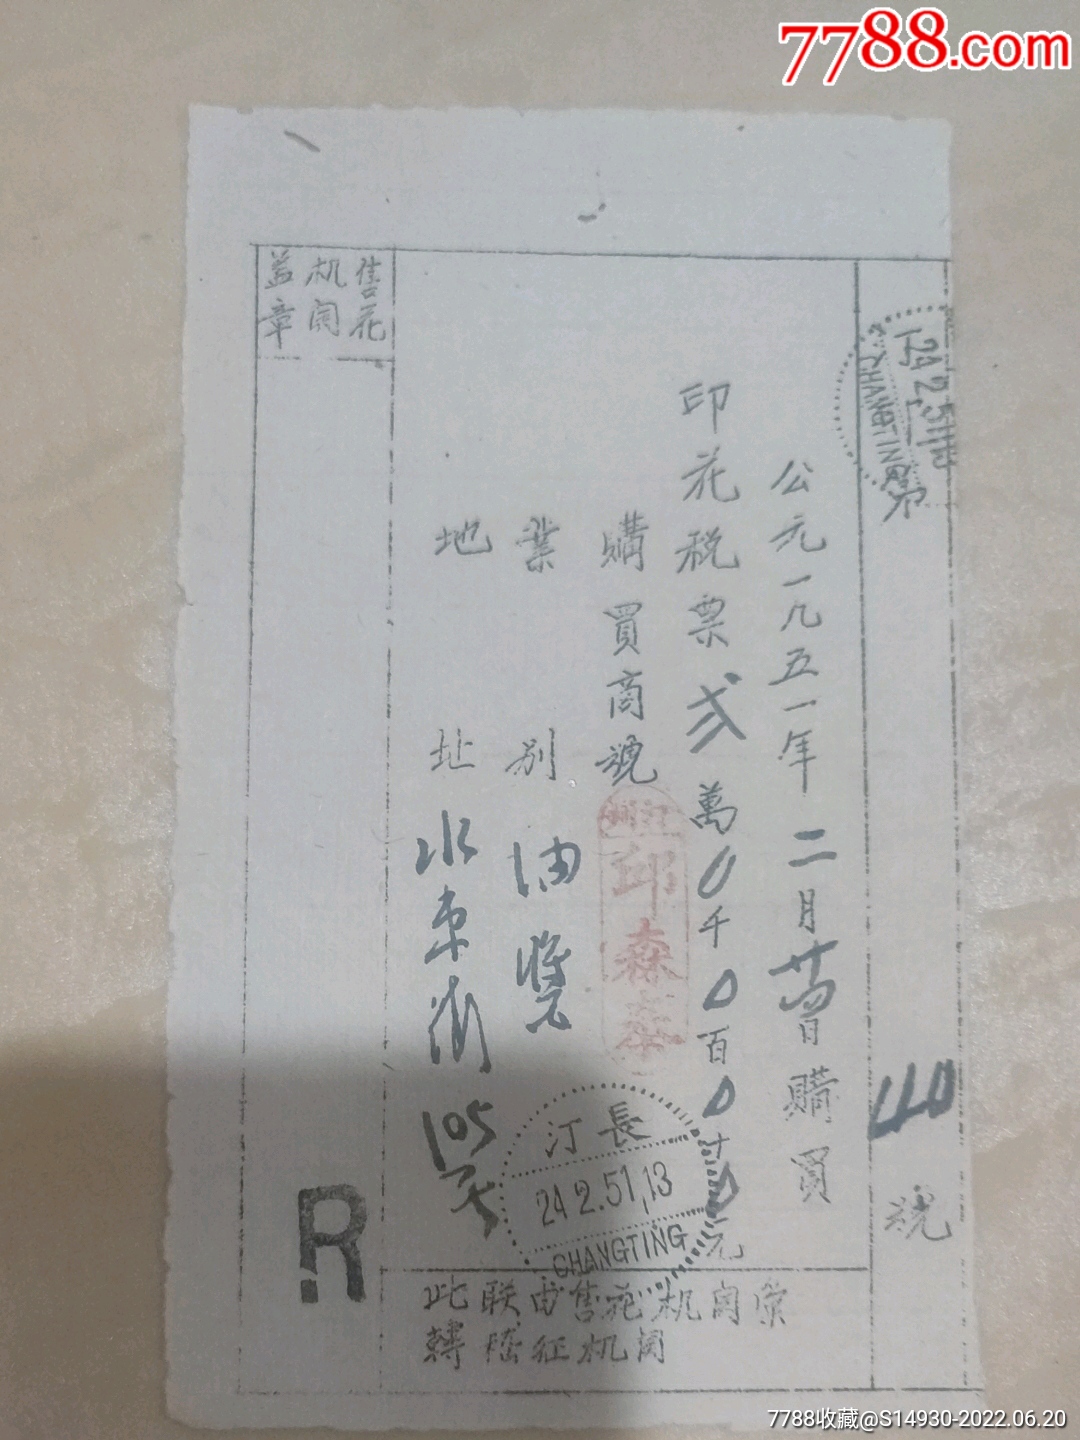 7788.com
24 2.51
CHANGTING
第 40 號
公元一九五一年二月廿四日購買
印花税票弍萬0千0百0十0元
購買商號
邱森泰
業别 油
地址 水東街 105
售花
机関
盖章
長汀
24 2.51,13
CHANGTING
R
此联由售花机関彙
轉 征机関
7788收藏@S14930-2022.06.20